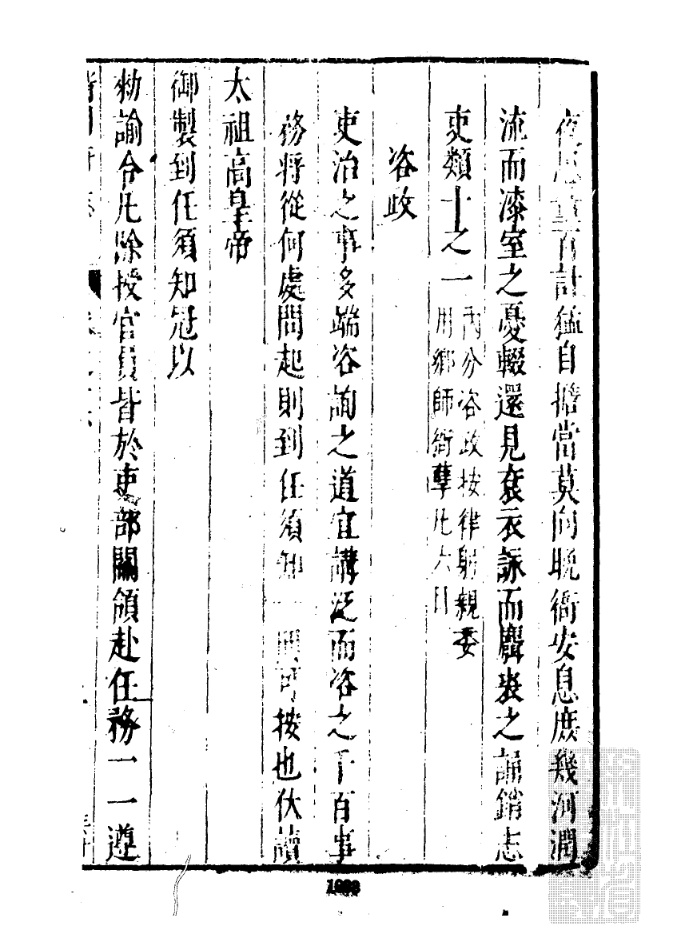 夜思百計猛自擔當莫向晩衙安息庶幾河潤
流而漆室之憂輟還見袞衣詠而麛裘之誦銷志
吏類十之一
內分咨政按律躬親委
用鄉師衙孽凡六目
咨政
吏治之事多端咨詢之道宜講泛而咨之千百事
務將從何處問起則到任須知一冊可按也伏讀
太祖高皇帝
御製到任須知冠以
勑諭令凡除授官員皆於吏部關領赴任務一一遵
1083